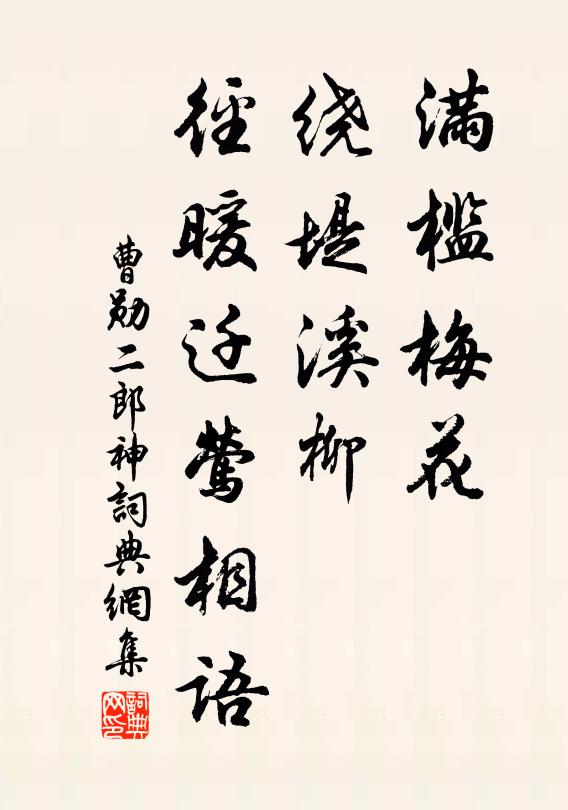 满槛梅花
绕堤溪柳
径暖迁莺相语
曹勋二郎神詞典網集
詞典网印